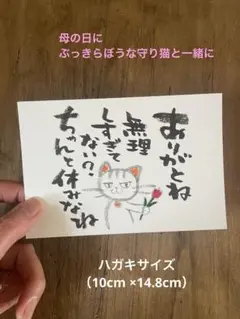 母の日に
ぶっきらぼうな守り猫と一緒に
ありがとね
無理
しすぎて
ない?
ちゃんと休みなね
ハガキサイズ
(10cm ×14.8cm)